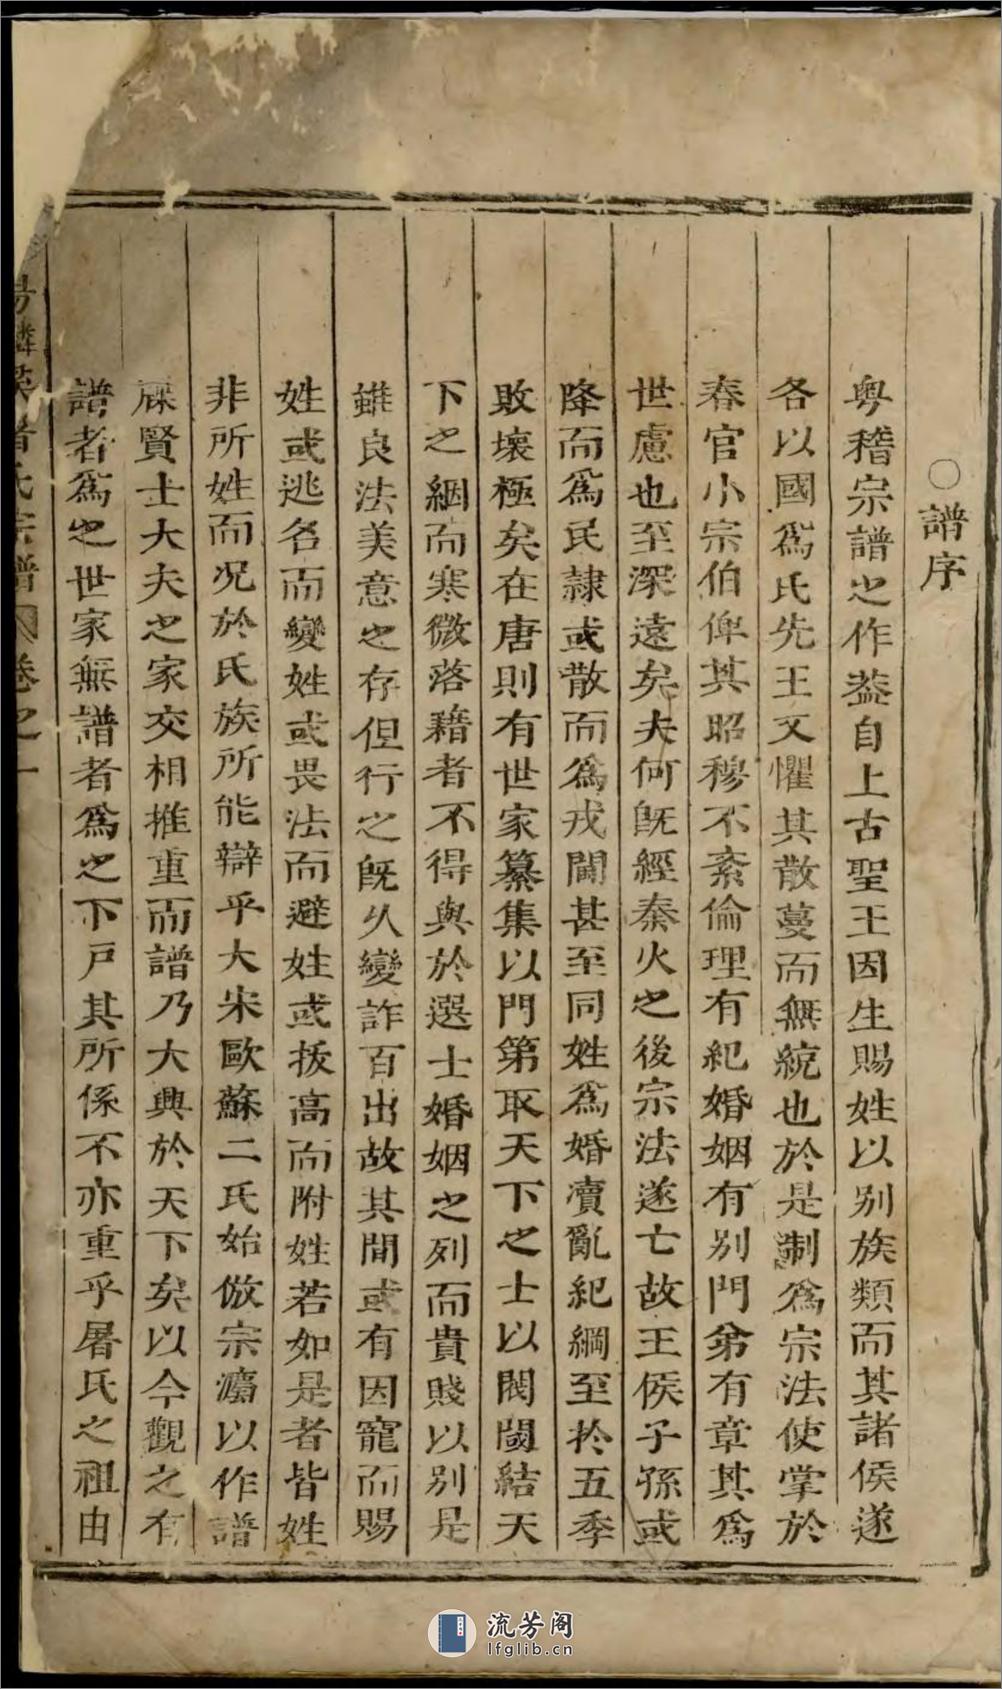 ○譜序
粤稽宗譜之作葢自上古聖王因生賜姓以别族類而其諸侯遂
各以國爲氏先王又懼其散蔓而無統也於是制爲宗法使掌於
春官小宗伯俾其昭穆不紊倫理有紀婚姻有别門弟有章其爲
世慮也至深遠矣夫何旣經秦火之後宗法遂亡故王侯子孫或
降而爲民隷或散而爲戎閫甚至同姓爲婚瀆亂紀綱至於五季
敗壞極矣在唐則有世家纂集以門第取天下之士以閥閱結天
下之綑而寒微落籍者不得與於選士婚姻之列而貴賤以别是
雖良法美意之存但行之旣乆變詐百出故其間或有因寵而賜
姓或逃名而變姓或畏法而避姓或扳高而附姓若如是者皆姓
非所姓而况於氏族所能辯乎大宋歐蘇二氏始倣宗灋以作譜
牒賢士大夫之家交相推重而譜乃大興於天下矣以今觀之有
譜者爲之世家無譜者爲之下戸其所係不亦重乎屠氏之祖由
氏宗譜 卷之一
流芳阁
lfglib.cn